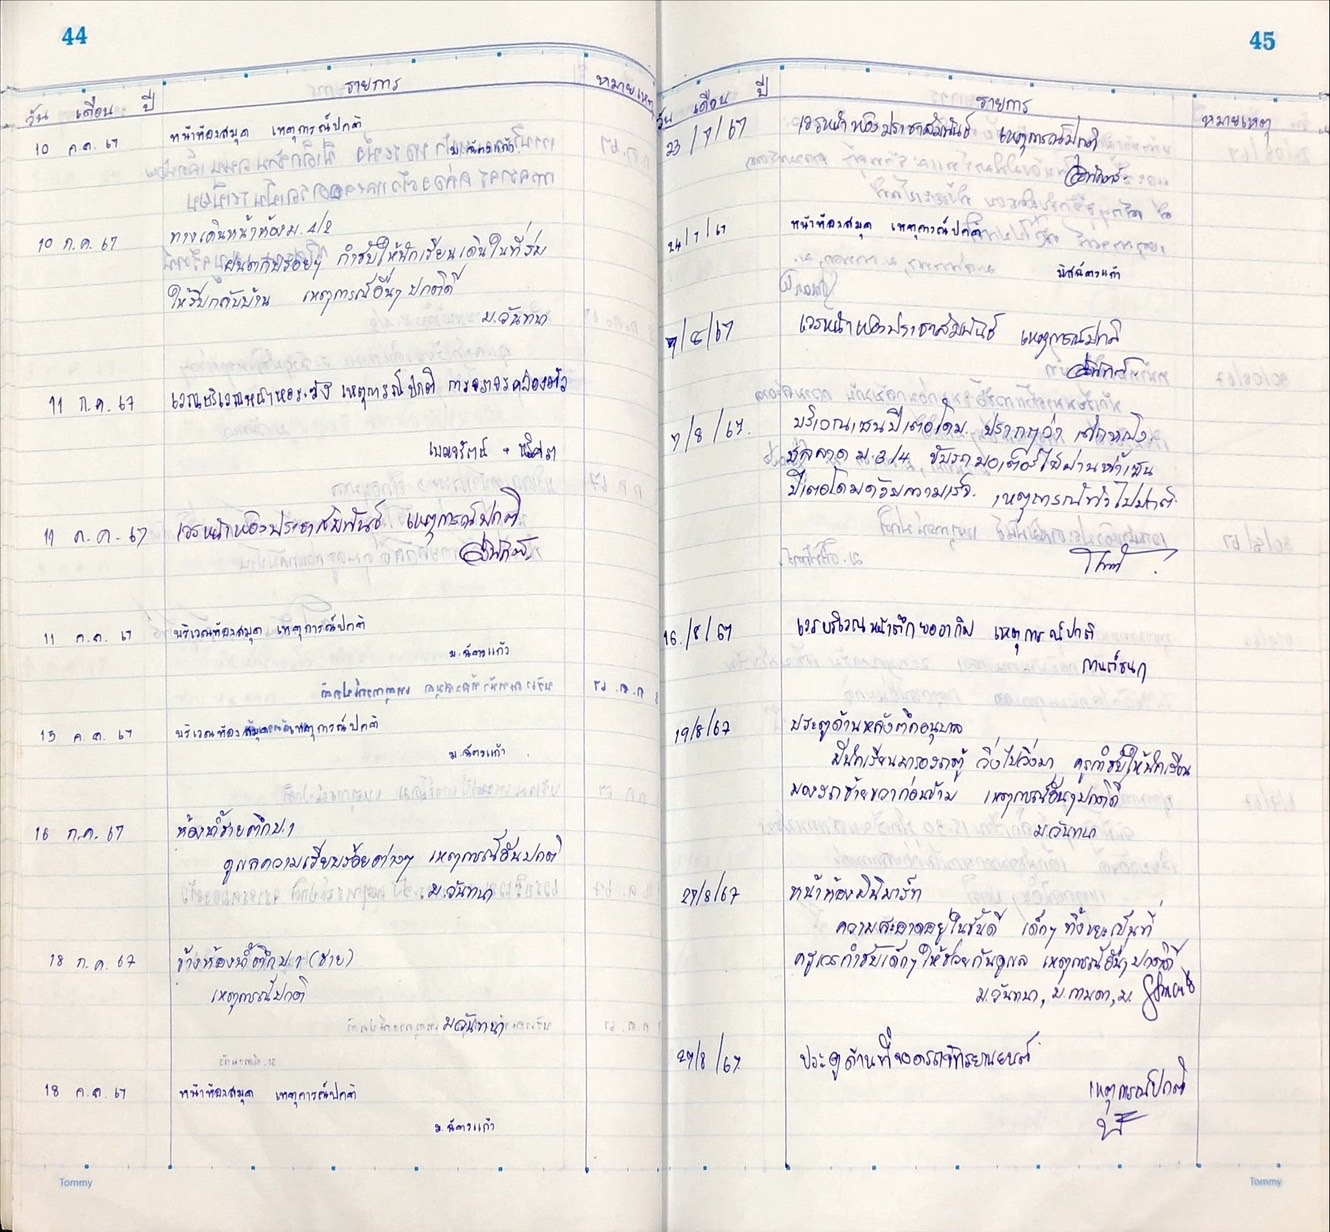 44
วัน เดือน ปี
รายการ
หมายเหตุ
10 ก.ค. 67
หน้าห้องสมุด เหตุการณ์ปกติ
ม.ฉัตรแก้ว
10 ก.ค. 67
ทางเดินหน้าห้อง ม.4/2
ฝนตกปรอยๆ กำชับให้นักเรียนเดินในที่ร่ม
ให้รีบกลับบ้าน เหตุการณ์อื่นๆ ปกติดี
ม.จันทนา
11 ก.ค. 67
เวณบริเวณหน้าหอระฆัง เหตุการณ์ปกติ การจราจรคล่องตัว
เบญจรัตน์
11 ก.ค. 67
เวรหน้าห้องประชาสัมพันธ์ เหตุการณ์ปกติ
11 ก.ค. 67
บริเวณห้องสมุด เหตุการณ์ปกติ
ม.ฉัตรแก้ว
15 ก.ค. 67
บริเวณห้องสมุด เหตุการณ์ปกติ
ม.ฉัตรแก้ว
16 ก.ค. 67
ห้องน้ำชายตึก ป.1
ดูแลความเรียบร้อยต่างๆ เหตุการณ์อื่นปกติ
ม.จันทนา
18 ก.ค. 67
ข้างห้องน้ำตึก ป.1 (ชาย)
เหตุการณ์ปกติ
ม.จันทนา
18 ก.ค. 67
หน้าห้องสมุด เหตุการณ์ปกติ
ม.ฉัตรแก้ว
Tommy
45
วัน เดือน ปี
รายการ
หมายเหตุ
23/7/67
เวรหน้าห้องประชาสัมพันธ์ เหตุการณ์ปกติ
24/7/67
หน้าห้องสมุด เหตุการณ์ปกติ
มิสฉัตรแก้ว
/8/67
เวรหน้าห้องประชาสัมพันธ์ เหตุการณ์ปกติ
7/8/67.
บริเวณเซนปีเตอโดม. ปรากฏว่า เด็กหญิง
ชุลลาด ม.3/4 ขับรถมอเตอร์ไซผ่านหน้าเซน
ปีเตอโดมด้วยความเร็ว. เหตุการณ์ทั่วไปปกติ.
16./8/67
เวรบริเวณหน้าตึกยออากิม เหตุการณ์ปกติ
กานต์ชนก
19/8/67
ประตูด้านหลังตึกอนุบาล
มีนักเรียนมารอรถตู้ วิ่งไปวิ่งมา ครูกำชับให้นักเรียน
มองรถซ้ายขวาก่อนข้าม เหตุการณ์อื่นๆ ปกติดี
ม.จันทนา
27/8/67
หน้าห้องมินิมาร์ท
ความสะอาดอยู่ในขั้นดี เด็กๆ ทิ้งขยะเป็นที่
ครูเวรกำชับเด็กๆ ให้ช่วยกันดูแล เหตุการณ์อื่นๆ ปกติดี
ม.จันทนา, ม.กานดา, ม.
27/8/67
ประตูด้านที่จอดรถจักรยานยนต์
เหตุการณ์ปกติ
Tommy